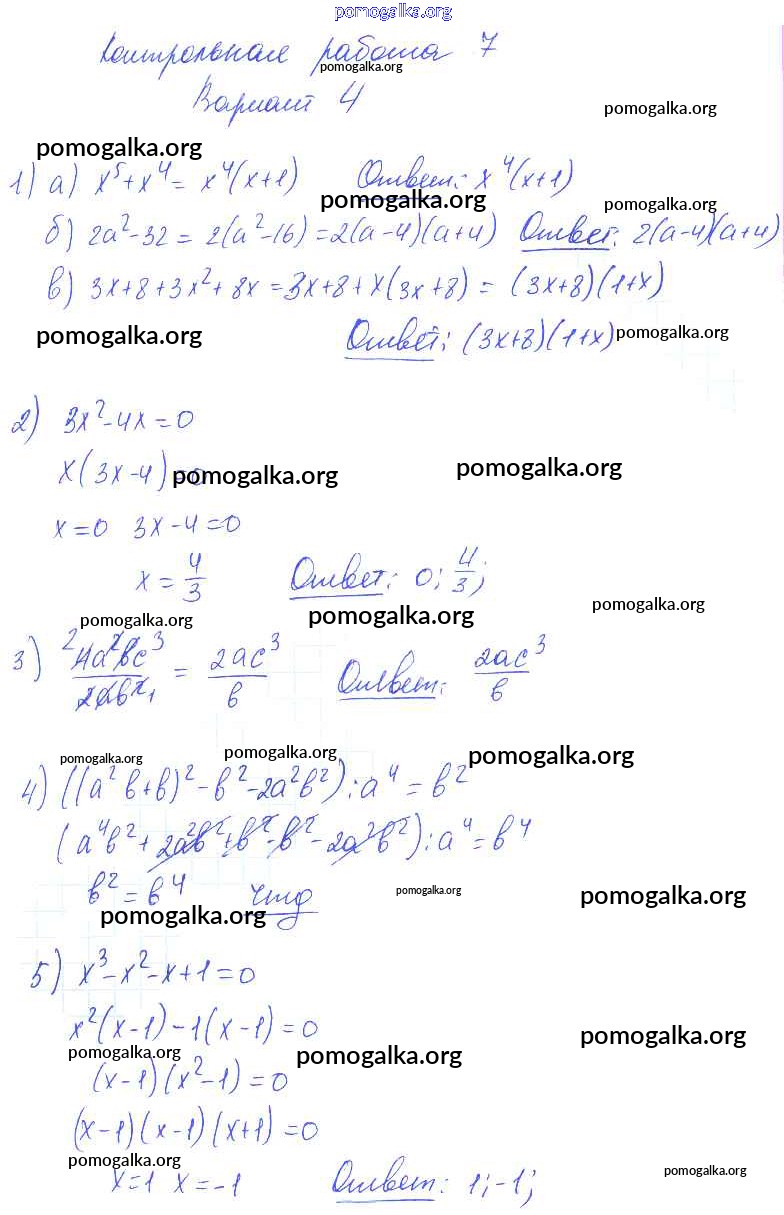 pomogalka.org
Контрольная работа 7
pomogalka.org
Вариант 4
pomogalka.org
pomogalka.org
1) а) x⁵+x⁴= x⁴(x+1) Ответ: x⁴(x+1)
pomogalka.org
pomogalka.org
б) 2a²-32 = 2(a²-16)=2(a-4)(a+4) Ответ: 2(a-4)(a+4)
в) 3x+8+3x²+8x =3x+8+x(3x+8) = (3x+8)(1+x)
pomogalka.org
Ответ: (3x+8)(1+x) pomogalka.org
2) 3x²-4x=0
x(3x-4)=0
pomogalka.org pomogalka.org
x=0 3x-4=0
x = 4/3 Ответ: 0; 4/3;
pomogalka.org pomogalka.org pomogalka.org
3) 4a²bc³/2ab² = 2ac³/b Ответ: 2ac³/b
pomogalka.org pomogalka.org pomogalka.org
4) ((a²b+b)²-b²-2a²b²):a⁴=b²
(a⁴b²+2a²b²+b²-b²-2a²b²):a⁴=b⁴
b²=b⁴ чтд
pomogalka.org pomogalka.org
pomogalka.org
5) x³-x²-x+1=0
x²(x-1)-1(x-1)=0
pomogalka.org
pomogalka.org pomogalka.org
(x-1)(x²-1)=0
(x-1)(x-1)(x+1)=0
pomogalka.org pomogalka.org
x=1 x=-1 Ответ: 1;-1;